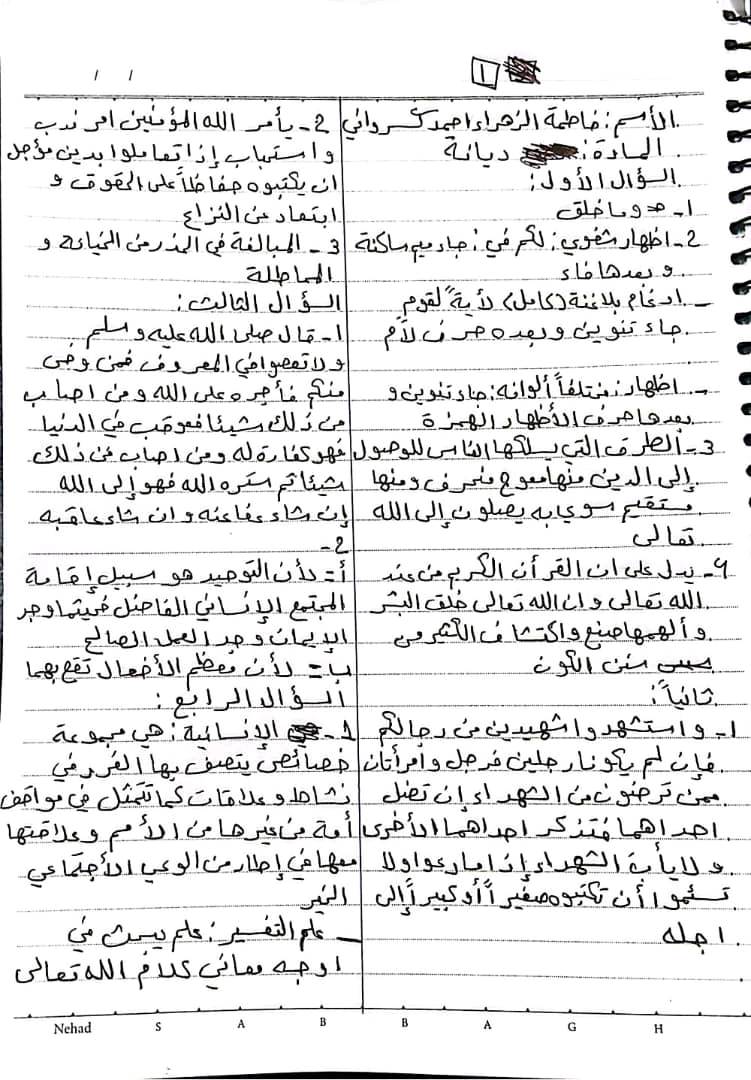 ١
/ /
الأسم: فاطمة الزهراء احمد كرواني
المادة: ديانة
السؤال الأول:
١- وما خلق
٢- اظهار شفوي: لكم في: جاء ميم ساكنة
و بعدها فاء
- ادغام بلا غنة (كامل) لأيةً لقوم
جاء تنوين وبعده حرف لام
- اظهار: مختلفاً ألوانه: جاء تنوين و
بعدها حرف الأظهار الهمزة
٣- الطرق التي يسلكها الناس للوصول
إلى الدين منها معوج منحرف ومنها
مستقيم سوي به يصلون إلى الله
تعالى
٤- يدل على ان القرآن الكريم من عند
الله تعالى وان الله تعالى خلق البشر
وألهمها صنع واكتشاف الكثير من
سنن الكون
ثانياً:
١- واستشهدوا شهيدين من رجالكم
فإن لم يكونا رجلين فرجل وامرأتان
ممن ترضون من الشهداء إن تضل
احداهما فتذكر احداهما الأخرى
ولا يأب الشهداء إذا ما دعوا ولا
تسئموا أن تكتبوه صغيراً أو كبيراً إلى
اجله
٢- يأمر الله المؤمنين امر ندب
واستحباب إذا تعاملوا بدين مؤجل
ان يكتبوه حفاظاً على الحقوق و
ابتعاد عن النزاع
٣- المبالغة في الحذر من الخيانة و
المماطلة
السؤال الثالث:
١- قال صلى الله عليه وسلم
ولا تعصوا في المعروف فمن وفى
منكم فأجره على الله ومن اصاب
من ذلك شيئا فعوقب في الدنيا
فهو كفارة له ومن اصاب من ذلك
شيئا ثم ستره الله فهو إلى الله
إن شاء عفا عنه وان شاء عاقبه
٢-
أ- لأن التوحيد هو سبيل إقامة
المجتمع الإنساني الفاضل فحيثما وجد
الإيمان وجد العمل الصالح
ب- لأن معظم الأفعال تقع بهما
السؤال الرابع:
١- الإنسانية: هي مجموعة
خصائص يتصف بها الفرد في
نشاط وعلاقات كما تتمثل في مواقف
أمة من غيرها من الأمم وعلاقتها
معها في إطار من الوعي الأجتماعي
الخير
- علم التفسير: علم يبحث في
اوجه معاني كلام الله تعالى
Nehad S A B B A G H